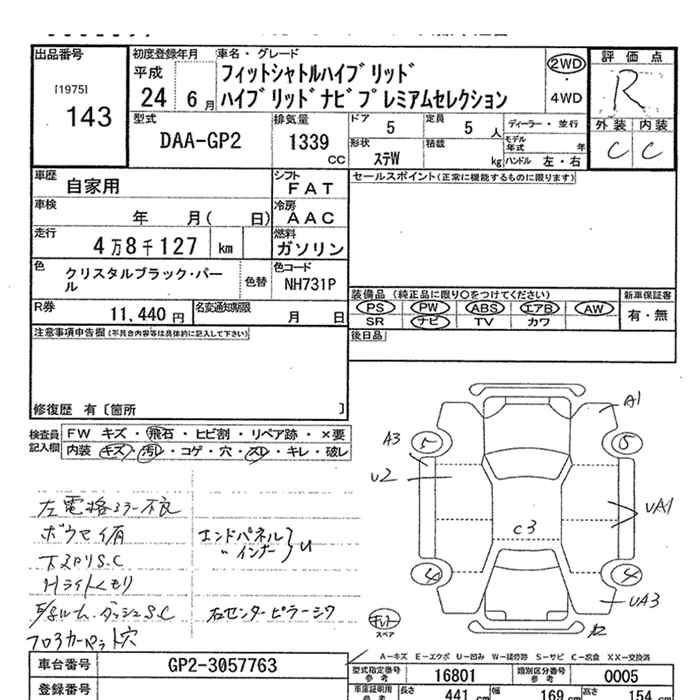 出品番号 初度登録年月 車名・グレード 評価点
[1975] 平成 フィットシャトルハイブリッド 2WD R
143 24 6月 ハイブリッドナビプレミアムセレクション 4WD 外装 内装
C C
型式 排気量 ドア 定員 ディーラー・並行
DAA-GP2 1339 CC 5 5人 モデル年式 年
形状 積載
ステW kg ハンドル 左・右
車歴 自家用 シフト FAT セールスポイント(正常に機能するものに限ります)
車検 年 月( 日) 冷房 AAC
走行 4万8千127 km 燃料 ガソリン
色 クリスタルブラック・パール 色替 色コード NH731P
装備品(純正品に限り○をつけてください) 新車保証書
PS PW ABS エアB AW 有・無
SR ナビ TV カワ
R券 11,440円 名変通知期限 月 日
後日品
注意事項申告欄(不具合内容等は具体的に記入して下さい)
修復歴 有〔箇所 〕
検査員記入欄 FW キズ・飛石・ヒビ割・リペア跡・×要
内装 キズ・汚レ・コゲ・穴・スレ・キレ・破レ
左電格ミラー不良
ボウセイ有 エンドパネル
〃インナー U
下スリS.C
Hライトくもり
右センターピラーシワ
フロアカーペット穴
A1
A3 5 5
U2
UA1
C3
4 4
UA3
スペア
A-キズ E-エクボ U-凹み W-補修跡 S-サビ C-腐食 XX-交換済
車台番号 GP2-3057763 型式指定番号 参考 16801 類別区分番号 参考 0005
登録番号 長さ 441 cm 幅 169 cm 高さ 154 cm